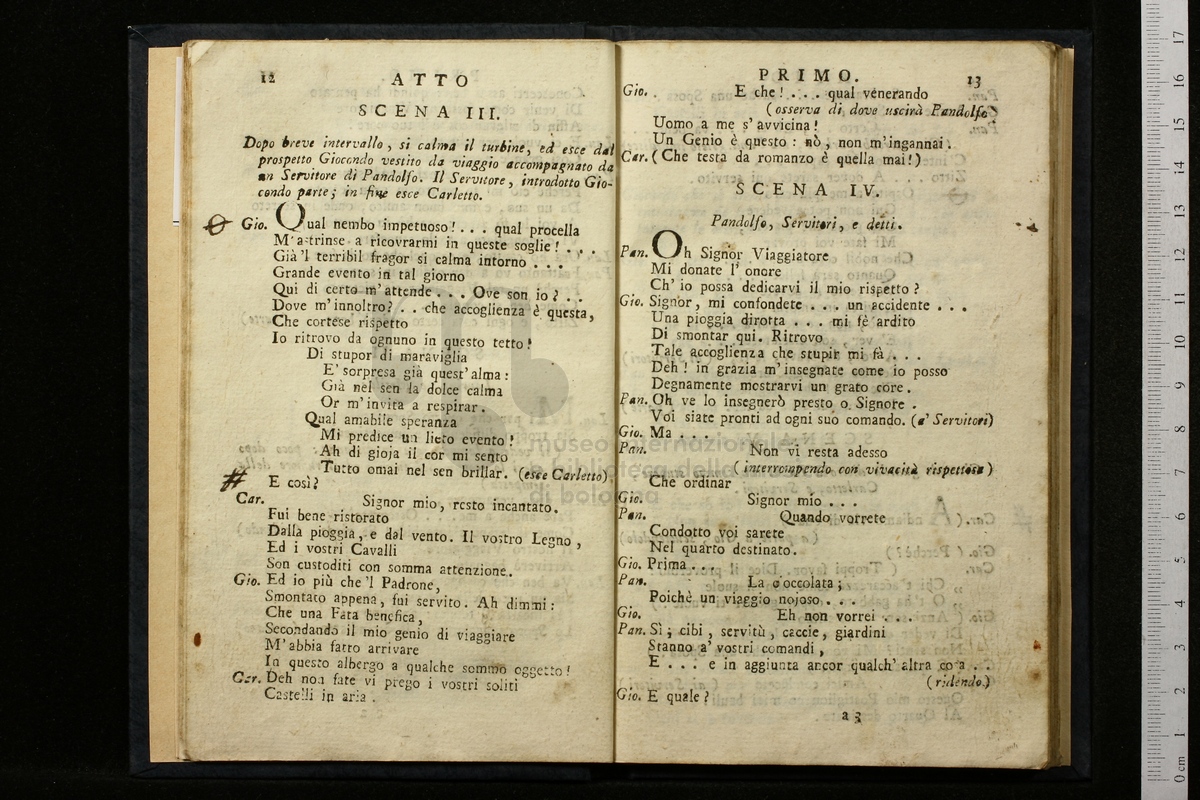 12
ATTO
SCENA III.
Dopo breve intervallo, si calma il turbine, ed esce dal
prospetto Giocondo vestito da viaggio accompagnato da
un Servitore di Pandolfo. Il Servitore, introdotto Gio-
condo parte; in fine esce Carletto.
Gio. Qual nembo impetuoso!... qual procella
M'astrinse a ricovrarmi in queste soglie! . . .
Già'l terribil fragor si calma intorno ...
Grande evento in tal giorno
Qui di certo m'attende ... Ove son io? . .
Dove m'innoltro? . . che accoglienza è questa,
Che cortese rispetto
Io ritrovo da ognuno in questo tetto!
Di stupor di maraviglia
E' sorpresa già quest'alma:
Già nel sen la dolce calma
Or m'invita a respirar.
Qual amabile speranza
Mi predice un lieto evento!
Ah di gioja il cor mi sento
Tutto omai nel sen brillar. (esce Carletto)
# E così?
Car. Signor mio, resto incantato.
Fui bene ristorato
Dalla pioggia, e dal vento. Il vostro Legno,
Ed i vostri Cavalli
Son custoditi con somma attenzione.
Gio. Ed io più che'l Padrone,
Smontato appena, fui servito. Ah dimmi:
Che una Fata benefica,
Secondando il mio genio di viaggiare
M'abbia fatto arrivare
In questo albergo a qualche sommo oggetto!
Car. Deh non fate vi prego i vostri soliti
Castelli in aria.
PRIMO.
13
Gio. E che! ... qual venerando
(osserva di dove uscirà Pandolfo
Uomo a me s'avvicina!
Un Genio è questo: nò, non m'ingannai.
Car. (Che testa da romanzo è quella mai!)
SCENA IV.
Pandolfo, Servitori, e detti.
Pan. Oh Signor Viaggiatore
Mi donate l'onore
Ch'io possa dedicarvi il mio rispetto?
Gio. Signor, mi confondete ... un accidente ...
Una pioggia dirotta ... mi fè ardito
Di smontar qui. Ritrovo
Tale accoglienza che stupir mi fà ...
Deh! in grazia m'insegnate come io posso
Degnamente mostrarvi un grato core.
Pan. Oh ve lo insegnerò presto o Signore.
Voi siate pronti ad ogni suo comando. (a' Servitori)
Gio. Ma ...
Pan. Non vi resta adesso
(interrompendo con vivacità rispettosa)
Che ordinar
Gio. Signor mio ...
Pan. Quando vorrete
Condotto voi sarete
Nel quarto destinato.
Gio. Prima ...
Pan. La cioccolata;
Poichè un viaggio nojoso ...
Gio. Eh non vorrei ...
Pan. Sì; cibi, servitù, caccie, giardini
Stanno a' vostri comandi,
E ... e in aggiunta ancor qualch'altra cosa . .
(ridendo.)
Gio. E quale?
a 3
museo internazionale
e biblioteca della musica
di bologna
0 cm 1 2 3 4 5 6 7 8 9 10 11 12 13 14 15 16 17